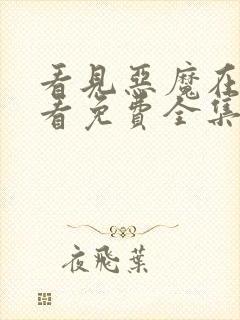 看見惡魔在
看免費全集
夜飛葉